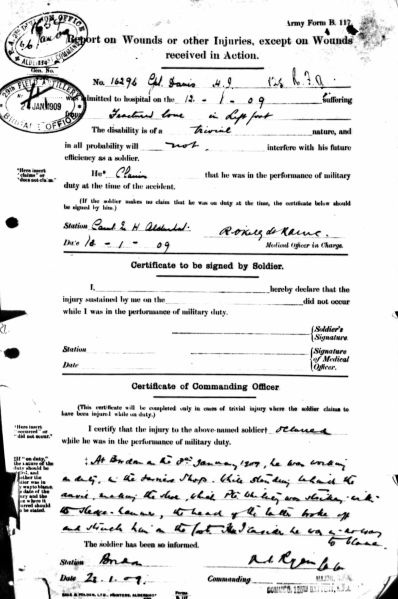 Army Form B. 117
R.A. DIVISION OFFICE
ALDERSHOT COMMAND
Report on Wounds or other Injuries, except on Wounds
received in Action.
No. 16296 Cpl. Davis H.J. R.F.A.
29th FIELD ARTILLERY
24 JAN 1909
BRIGADE OFFICE
was admitted to hospital on the 12 - 1 - 09 suffering
from Fractured bone in Left foot
The disability is of a trivial nature, and
in all probability will not interfere with his future
efficiency as a soldier.
*Here insert
"claims" or
"does not claim."
He* Claims that he was in the performance of military
duty at the time of the accident.
(If the soldier makes no claim that he was on duty at the time, the certificate below should
be signed by him.)
Station Camb. H. Aldershot
Date 12 - 1 - 09
Medical Officer in Charge.
Certificate to be signed by Soldier.
I, hereby declare that the
injury sustained by me on the did not occur
while I was in the performance of military duty.
Soldier's
Signature.
Station
Date
Signature
of Medical
Officer.
Certificate of Commanding Officer
(This certificate will be completed only in cases of trivial injury where the soldier claims to
have been injured while on duty.)
†Here insert
"occurred" or
"did not occur."
I certify that the injury to the above-named soldier† occurred
while he was in the performance of military duty.
‡At Bordon on the January 1909, he was working
on duty, in the Smiths Shop. While standing behind the
anvil, making the shoe, while the was striking with
the sledge-hammer, the head of the latter broke off
and struck him on the foot. I consider he was in no way
to blame.
The soldier has been so informed.
Station Bordon
Date 22.1.09. Commanding